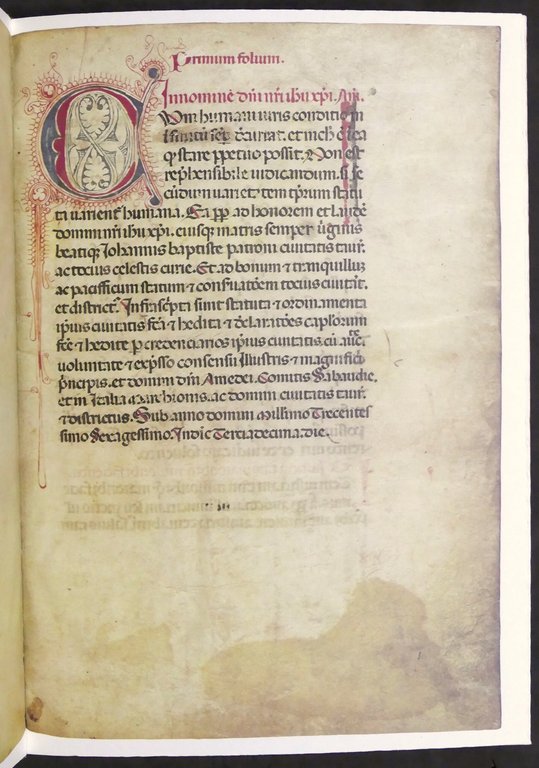 Primum folium.
In nomine dni nri ihu xpi. Am.
Cum humani iuris conditio in
semper decurrat. et nichil est in ea
q stare ppetuo possit. Non est
rephensibile iudicandum. si se
cundum varietatem tprum statu
ta varient humana. Ea pp ad honorem et laude
domini nri ihu xpi. eiusq matris semper uginis
beatiq Iohannis baptiste patroni ciuitatis taur.
ac tocius celestis curie. Et ad bonum et tranquillum
ac pacifficum statum et consuatoem tocius ciuitat.
et district. Infrascpta sunt statuta et ordinamenta
ipius ciuitatis fca et hedita et declaratoes caplorum
fce et hedite p credenciarios ipius ciuitatis cu
voluntate et expsso consensu Illustris et magnifici
pncipis. et domini dni Amedei. Comitis Sabaudie.
et in Italia Marchionis. ac domini ciuitatis taur.
et districtus. Sub anno domini Millimo Trecentes
simo Sexagessimo. Indic Terciadecima. die.